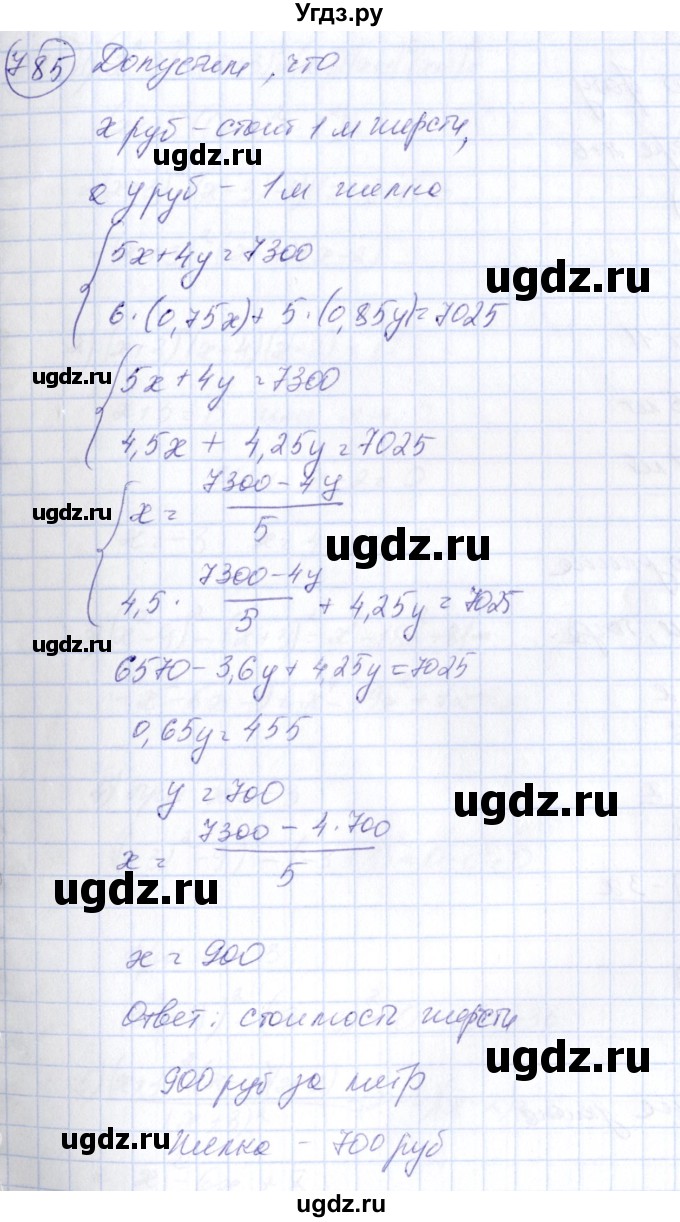 Угдз.ру
785 Допустим, что
x руб - стоит 1 м шерсти,
ugdz.ru
а y руб - 1 м шелка
5x + 4y = 7300
ugdz.ru
6 · (0,75x) + 5 · (0,85y) = 7025
ugdz.ru
5x + 4y = 7300
4,5x + 4,25y = 7025
ugdz.ru
x = (7300 - 4y)/5
ugdz.ru
4,5 · (7300 - 4y)/5 + 4,25y = 7025
ugdz.ru
6570 - 3,6y + 4,25y = 7025
0,65y = 455
y = 700
ugdz.ru
x = (7300 - 4 · 700)/5
ugdz.ru
x = 900
Ответ: стоимость шерсти
ugdz.ru
900 руб за метр
ugdz.ru
Шелка - 700 руб
ugdz.ru